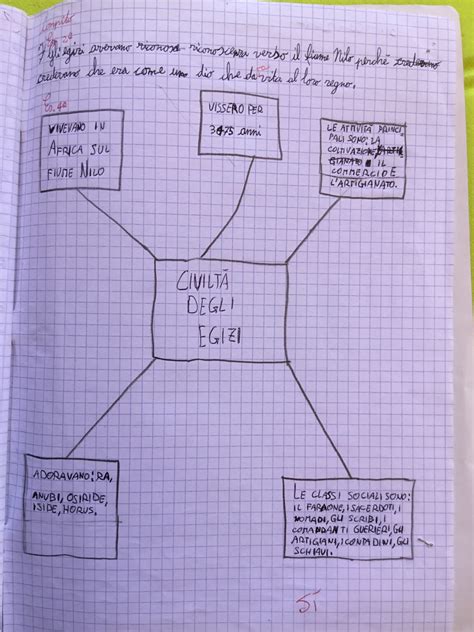 compito
7 gli egizi avevano riconosce riconoscenza verso il fiume Nilo perché
credevano che era come un dio che da vita al loro regno.
VIVEVANO IN
AFRICA SUL
FIUME NILO
VISSERO PER
3475 anni
LE ATTIVITÀ PRINCI
PALI SONO: LA
COLTIVAZIONE, 
IL
COMMERCIO E
L'ARTIGIANATO.
CIVILTÀ
DEGLI
EGIZI
ADORAVANO: RA,
ANUBI, OSIRIDE,
ISIDE, HORUS.
LE CLASSI SOCIALI SONO:
IL FARAONE, I SACERDOTI, I
NOMADI, GLI SCRIBI, I
COMANDANTI GUERIERI, GLI
ARTIGIANI, I CONTADINI, GLI
SCHIAVI.
SÌ